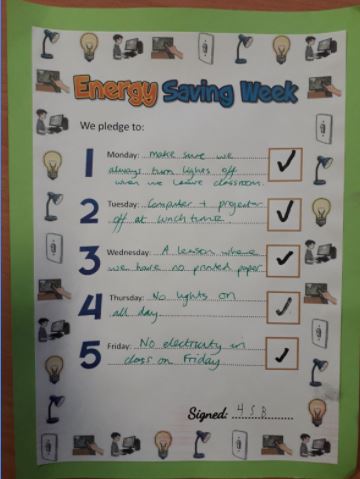 Energy Saving Week
We pledge to:
1 Monday: make sure we
always turn lights off
when we leave classroom.
2 Tuesday: Computer + projector
off at lunch time.
3 Wednesday: A lesson where
we have no printed paper
4 Thursday: No lights on
all day.
5 Friday: No electricity in
class on Friday
Signed: 4SB